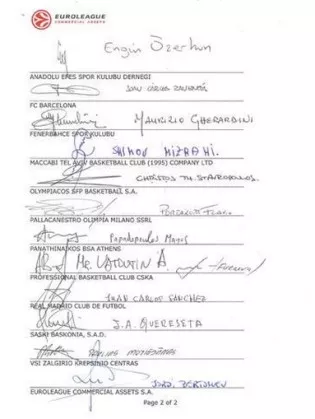 EUROLEAGUE
COMMERCIAL ASSETS
Engin Özerhun
ANADOLU EFES SPOR KULUBU DERNEGI
FC BARCELONA
MAURIZIO GHERARDINI
FENERBAHCE SPOR KULUBU
SHIMON MIZRAHI
MACCABI TEL AVIV BASKETBALL CLUB (1995) COMPANY LTD
CHRISTOS TH. STAVROPOULOS
OLYMPIACOS SFP BASKETBALL S.A.
PALLACANESTRO OLIMPIA MILANO SSRL
Papadopoulos Manos
PANATHINAIKOS BSA ATHENS
Mr. VATUTIN A.
PROFESSIONAL BASKETBALL CLUB CSKA
JUAN CARLOS SANCHEZ
REAL MADRID CLUB DE FUTBOL
J.A. QUEREJETA
SASKI BASKONIA, S.A.D.
VSI ZALGIRIO KREPSINIO CENTRAS
JORDI BERTOMEU
EUROLEAGUE COMMERCIAL ASSETS S.A.
Page 2 of 2